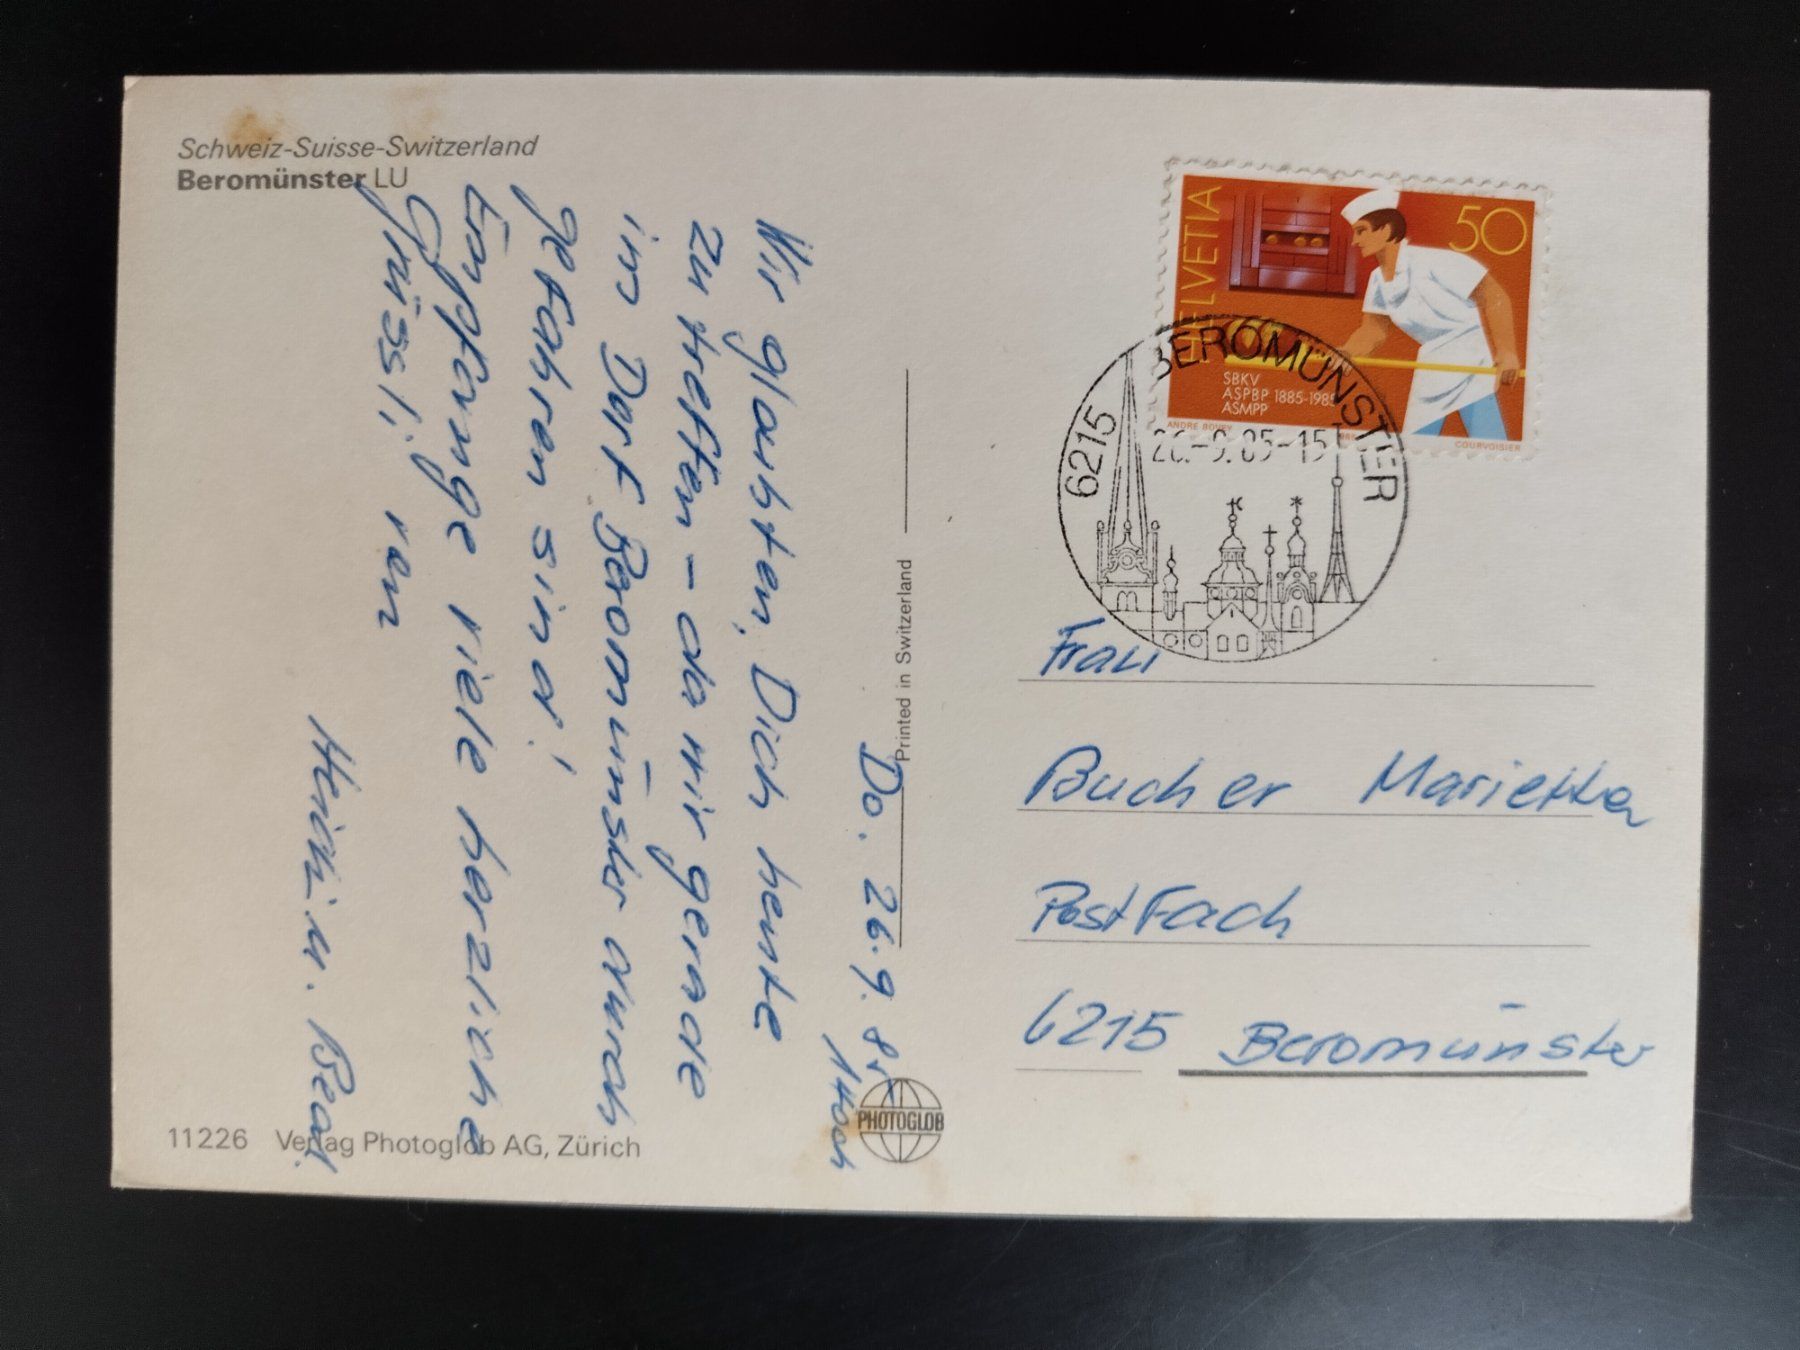 Schweiz-Suisse-Switzerland
Beromünster LU
Do. 26.9.85
1400h
Wir glaubten, Dich heute
zu treffen – da wir gerade
im Dorf Beromünster durch
gefahren sind!
Empfange viele herzliche
Grüssli von
Heidi u. Beat.
11226 Verlag Photoglob AG, Zürich
Printed in Switzerland
PHOTOGLOB
HELVETIA
50
SBKV
ASPBP 1885-1985
ASMPP
ANDRE BOVEY
COURVOISIER
6215 BEROMÜNSTER
26.-9.85-15
Frau
Bucher Marietta
Postfach
6215 Beromünster